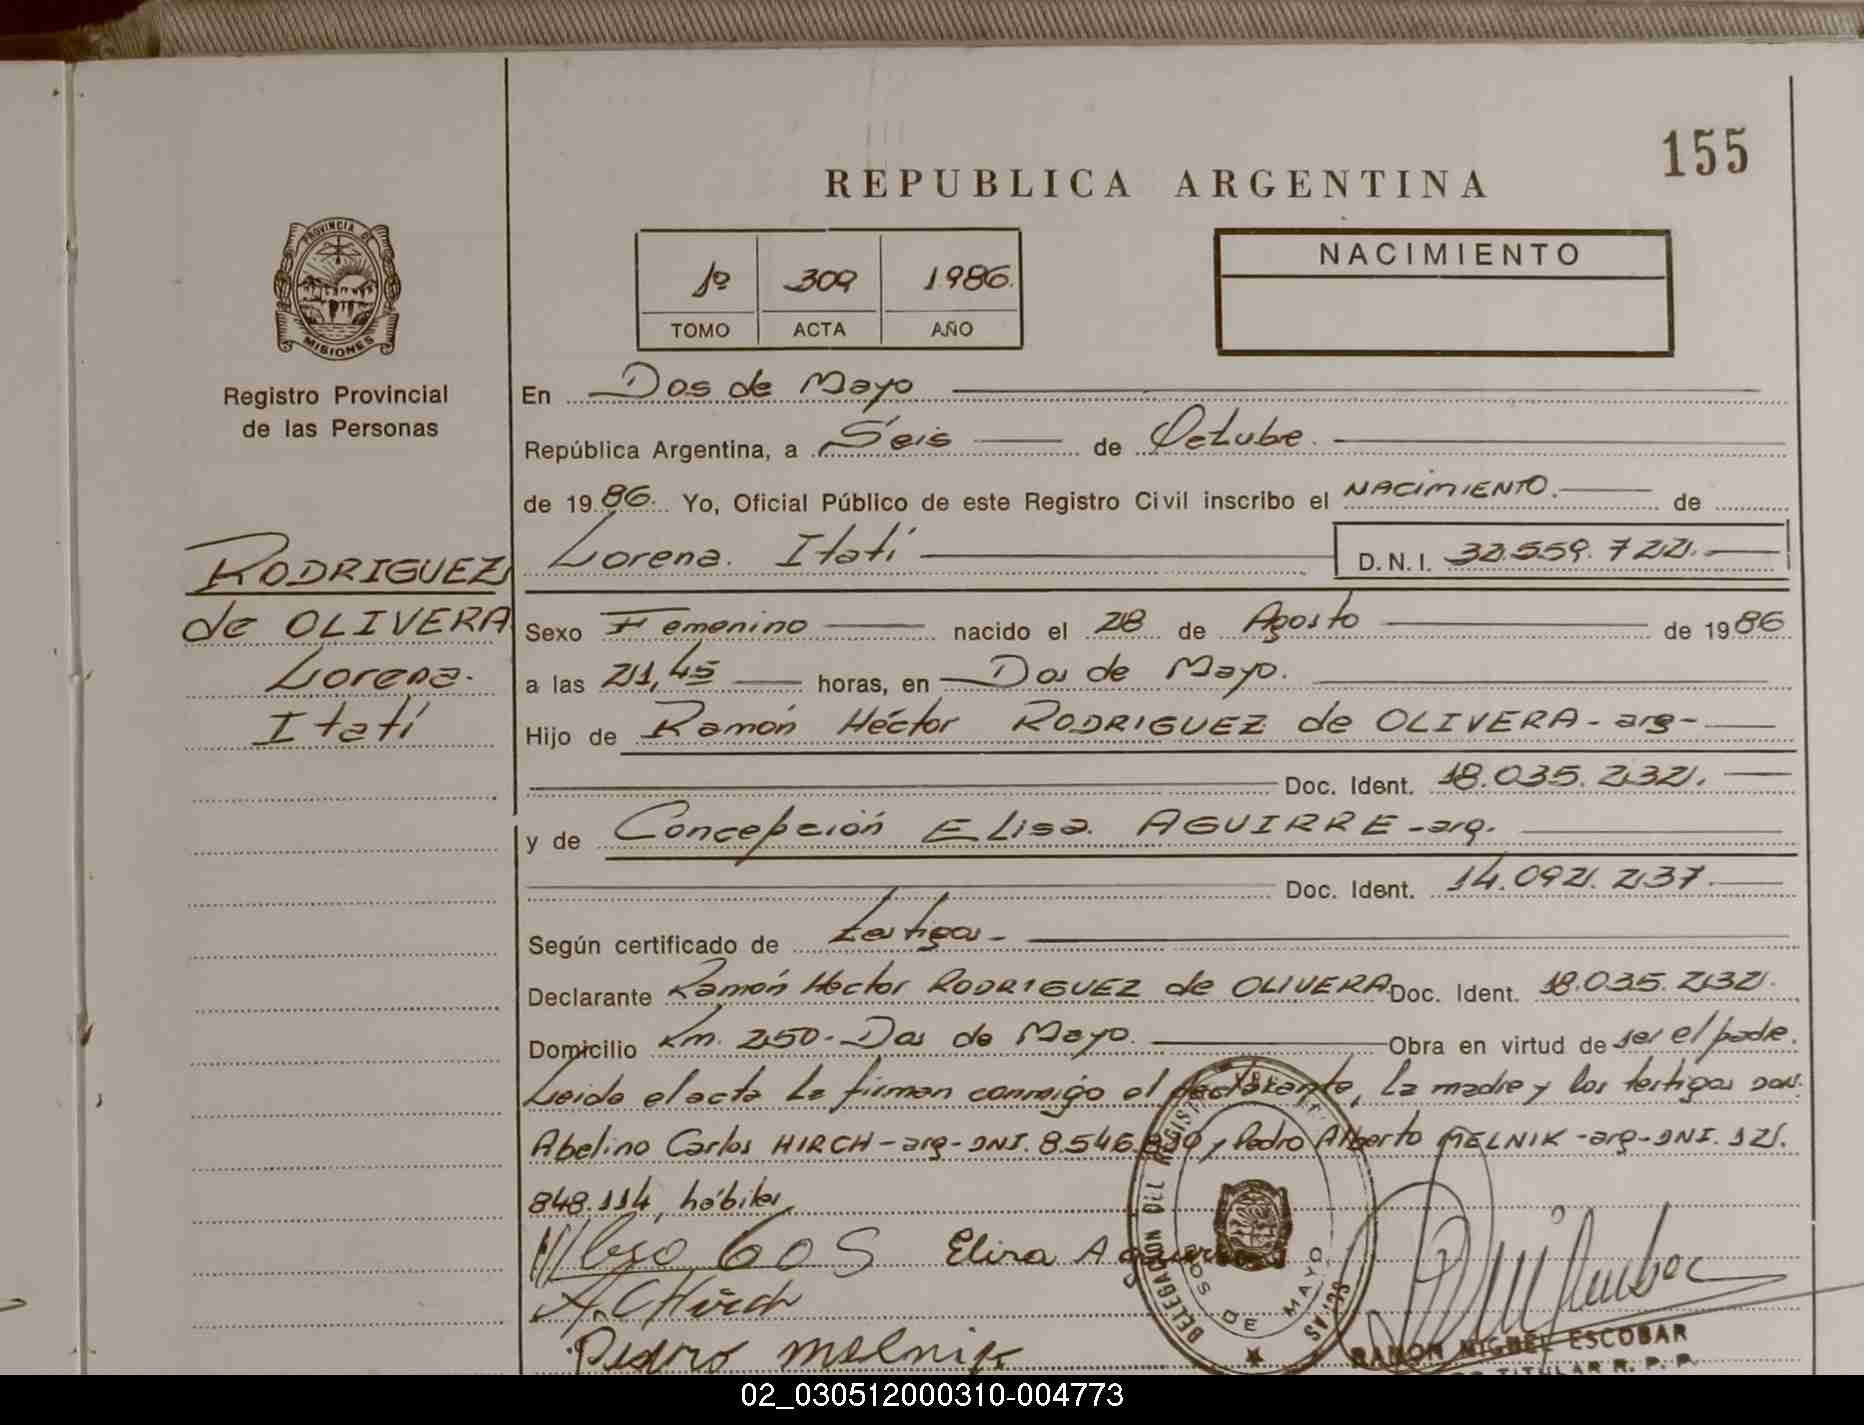 155
REPUBLICA ARGENTINA
PROVINCIA DE
MISIONES
1º 309 1986.
TOMO ACTA AÑO
NACIMIENTO
Registro Provincial
de las Personas
En Dos de Mayo
República Argentina, a Seis de Octube.
de 1986. Yo, Oficial Público de este Registro Civil inscribo el NACIMIENTO. de
RODRIGUEZ
de OLIVERA
Lorena.
Itatí
Lorena. Itatí D.N.I. 32.559.722.
Sexo Femenino nacido el 28 de Agosto de 1986
a las 21,45 horas, en Dos de Mayo.
Hijo de Ramón Héctor RODRIGUEZ de OLIVERA - arg-
Doc. Ident. 18.035.232.
y de Concepción ELisa. AGUIRRE - arg.
Doc. Ident. 14.092.237.
Según certificado de testigos-
Declarante Ramón Héctor RODRIGUEZ de OLIVERA Doc. Ident. 18.035.232.
Domicilio Km. 250- Dos de Mayo. Obra en virtud de ser el padre.
Leida el acta La firman conmigo el declarante, La madre y los testigos Don.
Abelino Carlos HIRCH - arg - DNI. 8.546. y Pedro Alberto MELNIK - arg - DNI. 12.
848.114, hábiles
Elisa Aguirre
A.C Hirch
Pedro Melnik
DELEGACION DEL REGISTRO
DOS DE MAYO
RAMON MIGUEL ESCOBAR
TITULAR R. P. P.
02_030512000310-004773